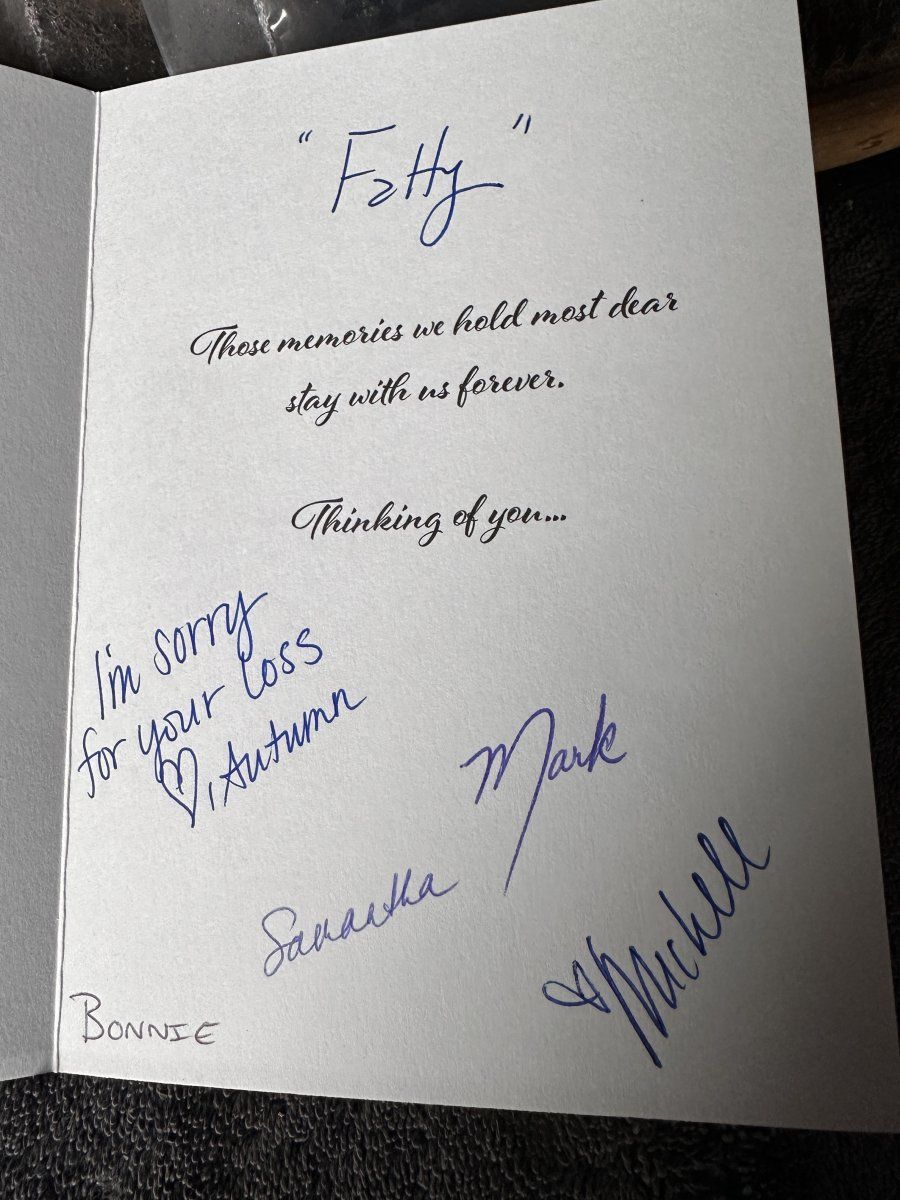 "Fatty"
Those memories we hold most dear
stay with us forever.
Thinking of you...
I'm sorry
for your loss
♡, Autumn
Mark
Samantha
♡ Michell
BONNIE